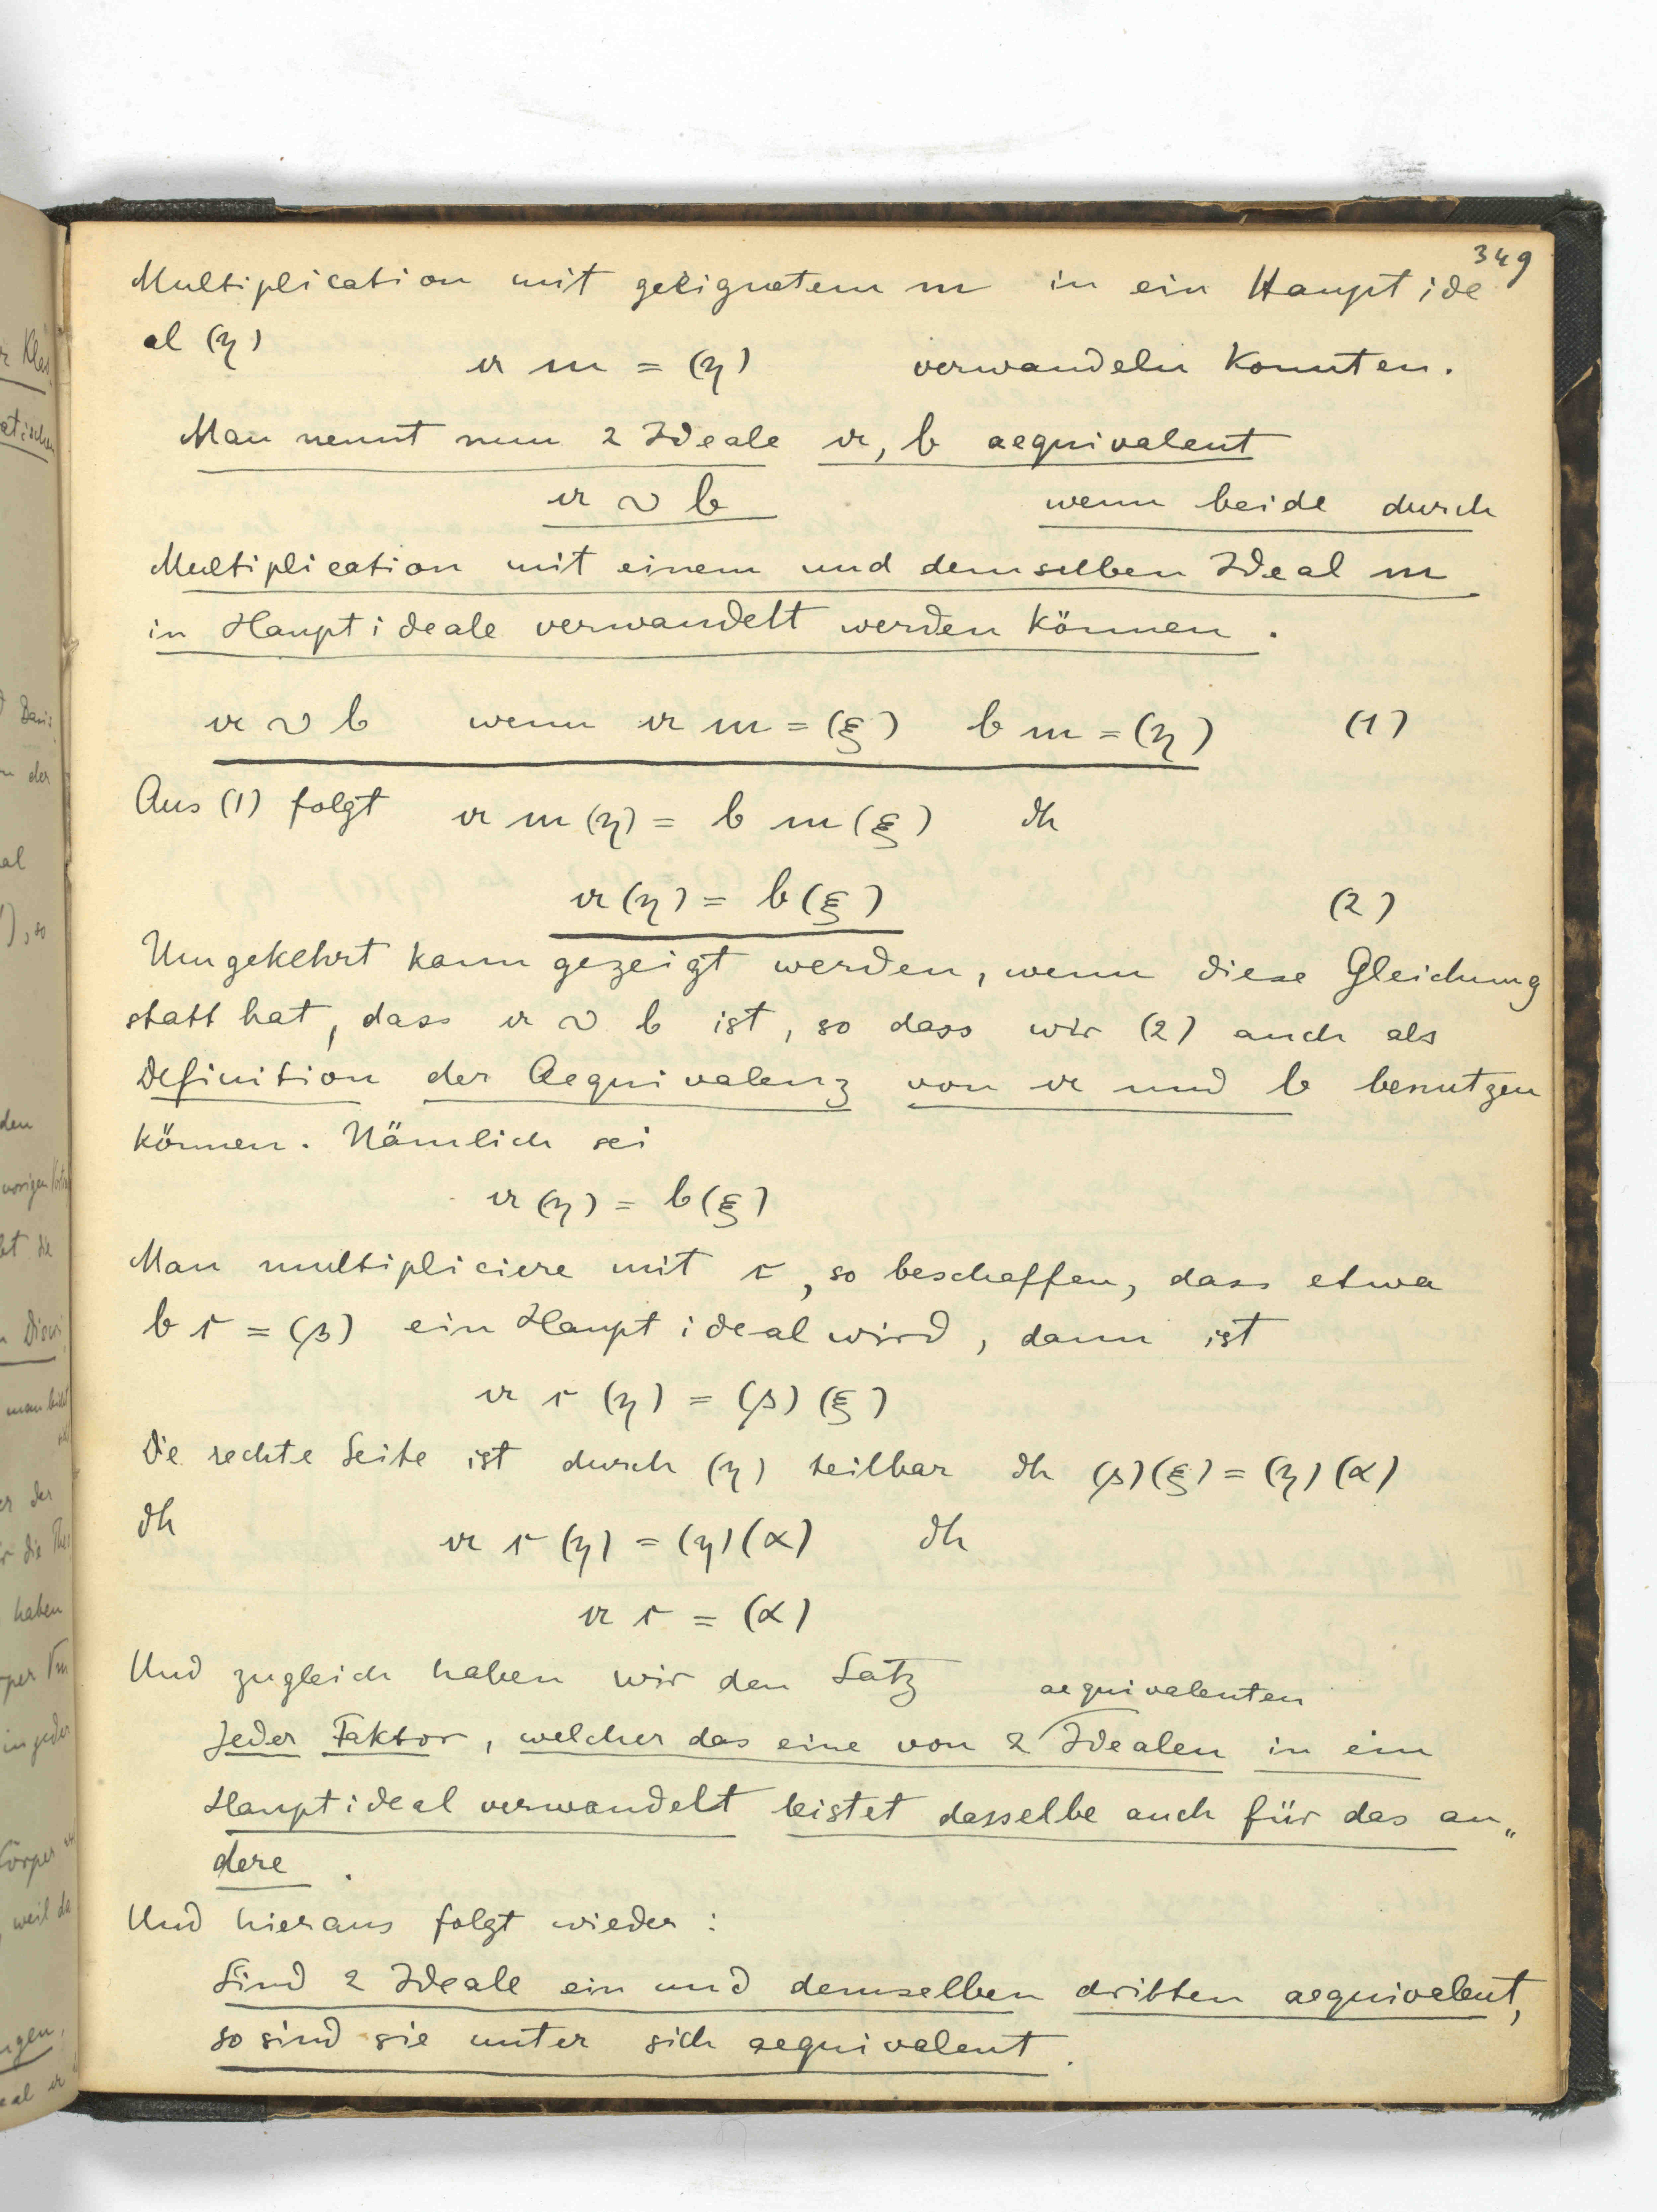 349
Multiplication mit geeignetem 𝔪 in ein Hauptide
al (η)
𝔞 𝔪 = (η) verwandeln konnten.
Man nennt nun 2 Ideale 𝔞, 𝔟 aequivalent
𝔞 ∾ 𝔟 wenn beide durch
Multiplication mit einem und demselben Ideal 𝔪
in Hauptideale verwandelt werden können.
𝔞 ∾ 𝔟 wenn 𝔞 𝔪 = (ξ) 𝔟 𝔪 = (η) (1)
Aus (1) folgt 𝔞 𝔪 (η) = 𝔟 𝔪 (ξ) dh
𝔞 (η) = 𝔟 (ξ) (2)
Umgekehrt kann gezeigt werden, wenn diese Gleichung
statt hat, dass 𝔞 ∾ 𝔟 ist, so dass wir (2) auch als
Definition der Aequivalenz von 𝔞 und 𝔟 benutzen
können. Nämlich sei
𝔞 (η) = 𝔟 (ξ)
Man multipliciere mit 𝔯, so beschaffen, dass etwa
𝔟 𝔯 = (β) ein Hauptideal wird, dann ist
𝔞 𝔯 (η) = (β) (ξ)
Die rechte Seite ist durch (η) teilbar dh (β)(ξ) = (η)(α)
dh 𝔞 𝔯 (η) = (η)(α) dh
𝔞 𝔯 = (α)
Und zugleich haben wir den Satz
aequivalenten
Jeder Faktor, welcher das eine von 2 Idealen in ein
Hauptideal verwandelt leistet dasselbe auch für das an„
dere.
Und hieraus folgt wieder:
Sind 2 Ideale ein und demselben dritten aequivalent,
so sind sie unter sich aequivalent.